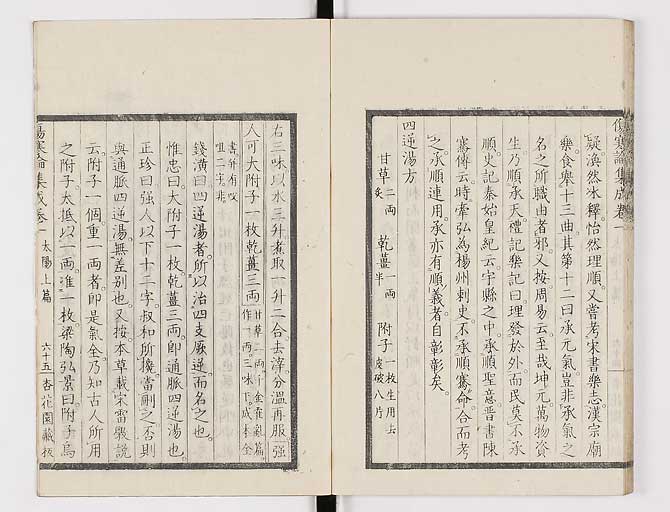 傷寒論集成卷一
疑渙然冰釋怡然理順又嘗考宋書樂志漢宗廟
樂食舉十三曲其第十二曰承元氣豈非承氣之
名之所職由者邪又按周易云至哉坤元萬物資
生乃順承天禮記樂記曰理發於外而民莫不承
順史記秦始皇紀云宇縣之中承順聖意晉書陳
騫傳云時牽弘為楊州刺史不承順騫命合而考
之承順連用承亦有順義者自彰彰矣
四逆湯方
甘草二兩炙 乾薑一兩半 附子一枚生用去皮破八片
右三味以水三升煮取一升二合去滓分溫再服強
人可大附子一枚乾薑三兩甘草二兩千金霍亂篇作一兩三味下成本全
書外有㕮咀二字非
錢潢曰四逆湯者所以治四支厥逆而名之也
惟忠曰大附子一枚乾薑三兩即通脈四逆湯也
正珍曰強人以下十二字叔和所攙當刪之否則
與通脈四逆湯無差別也又按本草載宋雷斅說
云附子一個重一兩者即是氣全乃知古人所用
之附子大抵以一兩准一枚梁陶弘景曰附子烏
傷寒論集成卷一 太陽上篇 六十五 杏花園藏板